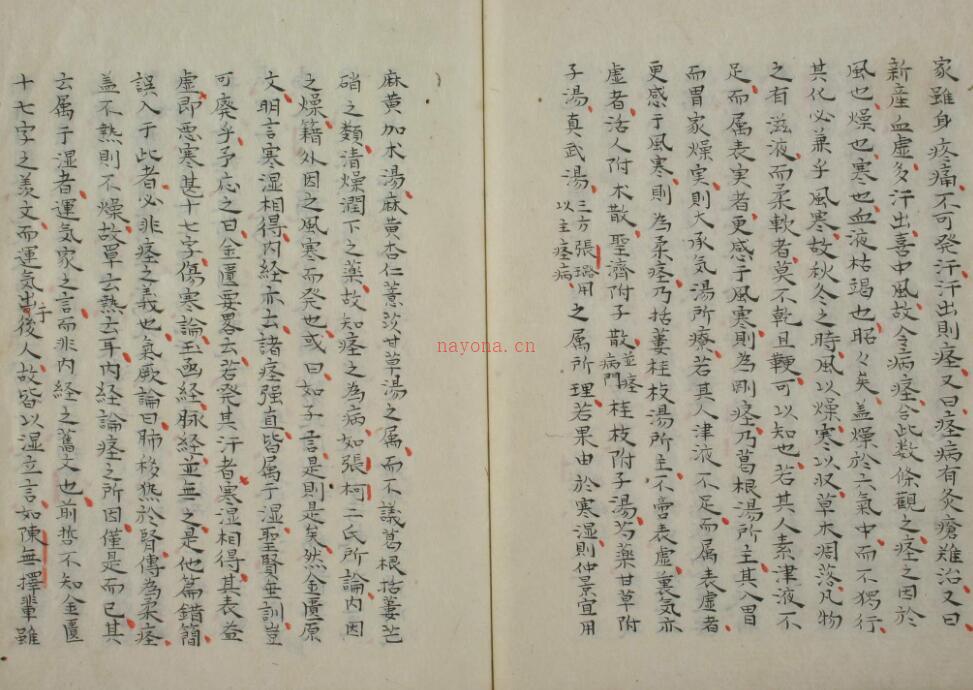 家雖身疼痛不可発汗汗出則痙又曰痙病有灸瘡難治又曰
新産血虚多汗出喜中風故令病痙合此数條觀之痙之因於
風也燥也寒也血液枯竭也昭々矣盖燥於六氣中而不獨行
其化必兼乎風寒故秋冬之時風以燥寒以収草木凋落凡物
之有滋液而柔軟者莫不乾且鞕可以知也若其人素津液不
足而属表実者更感于風寒則為剛痙乃葛根湯所主其入胃
而胃家燥実則大承気湯所療若其人津液不足而属表虚者
更感于風寒則為柔痙乃括蔞桂枝湯所主不啻表虚裏気亦
虚者活人附朮散聖濟附子散並痙病門桂枝附子湯芍薬甘草附
子湯真武湯三方張璐用以主痙病之属所理若果由於寒湿則仲景宜用
麻黄加朮湯麻黄杏仁薏苡甘草湯之属而不議葛根括蔞芒
硝之類清燥潤下之薬故知痙之為病如張柯二氏所論内因
之燥籍外因之風寒而発也或曰如子言是則是矣然金匱原
文明言寒湿相得内経亦云諸痙强直皆属于湿聖賢垂訓豈
可廃乎予応之曰金匱要畧云若発其汗者寒湿相得其表益
虚即悪寒甚十七字傷寒論玉函経脉経並無之是他篇錯簡
誤入于此者必非痙之義也氣厥論曰肺移熱於腎傳為柔痙
盖不熱則不燥故單云熱云耳内経論痙之所因僅是而已其
云属于湿者運気家之言而非内経之舊文也前哲不知金匱
十七字之羨文而運氣出于後人故皆以湿立言如陳無擇輩雖
nayona.cn